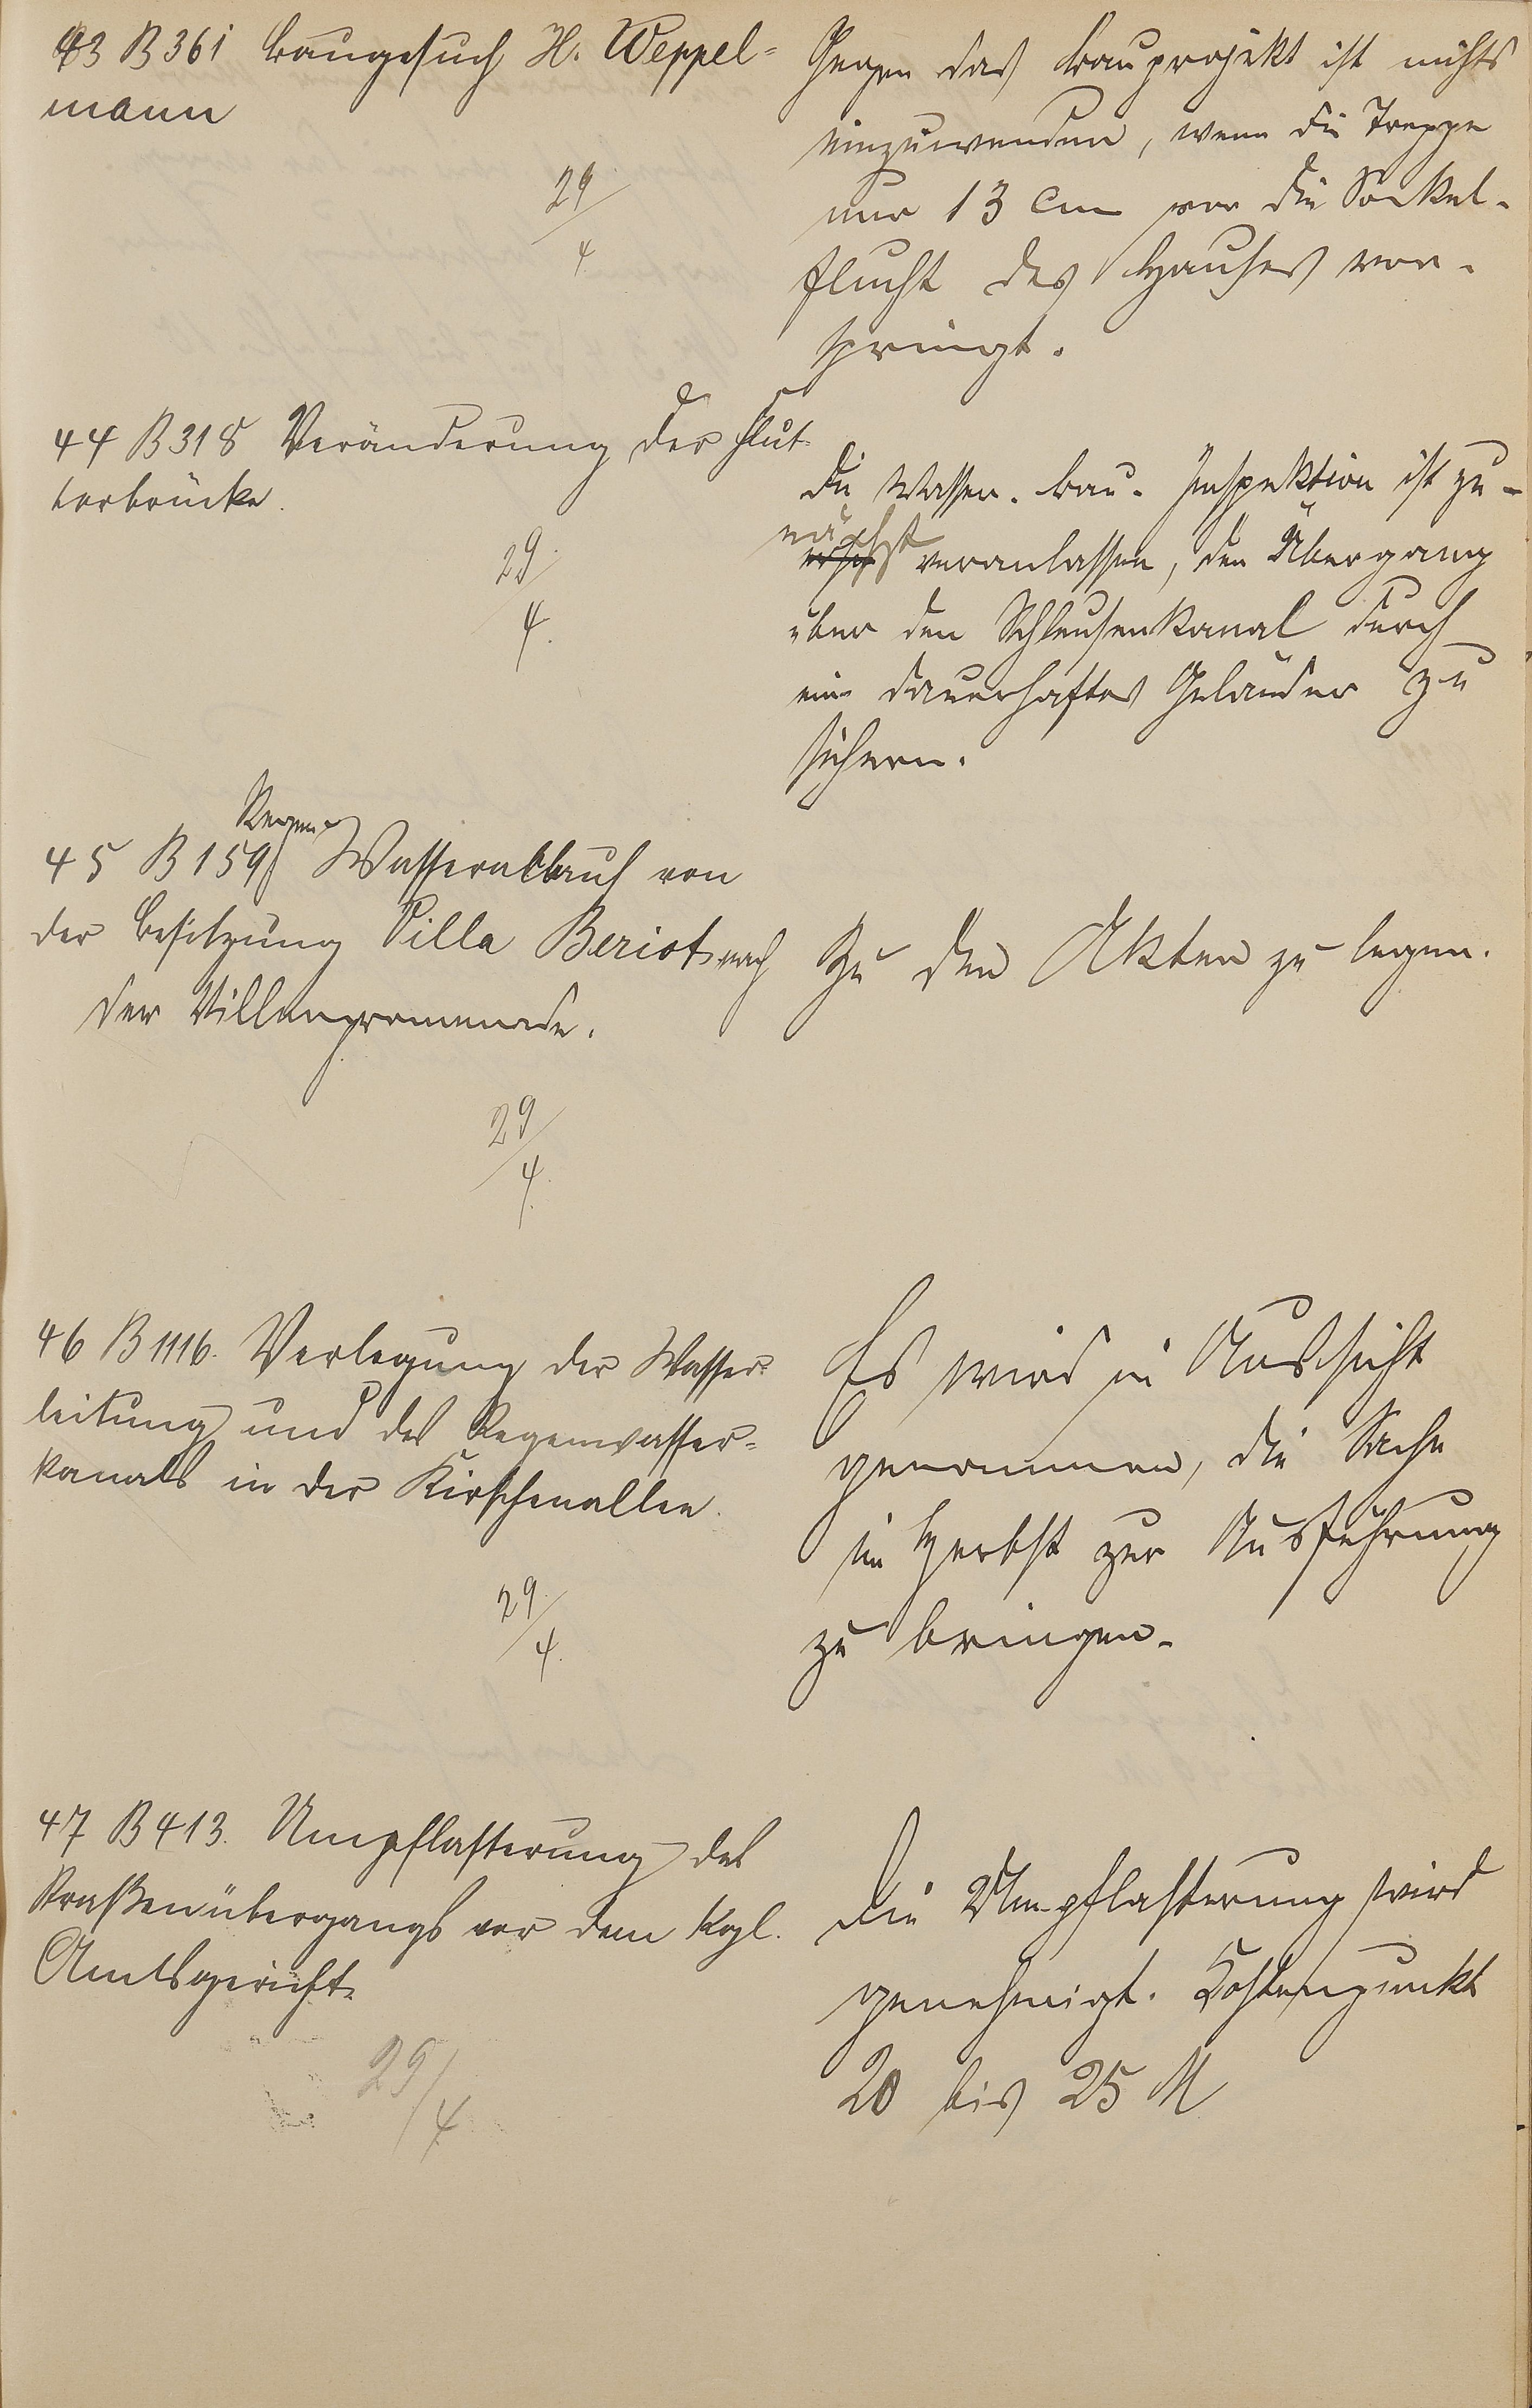 43 B 361 Baugesuch H. Weppel-
mann
29/4
Gegen das Bauprojekt ist nichts
einzuwenden, wenn die Treppe
nur 13 cm vor die Sockel-
flucht des Hauses vor-
springt.
44 B 318 Veränderung der Flut-
torbrücke.
29/4.
Die Wasser-Bau-Inspektion ist zu-
nächst
veranlassen, den Übergang
über den Schleusenkanal durch
ein dauerhaftes Geländer zu
sichern.
Regen-
45 B 159 Wasserablauf von
der Besitzung Villa Beriot nach
der Villenpromenade.
29/4.
Zu den Akten zu legen.
46 B 1116. Verlegung der Wasser-
leitung und des Regenwasser-
kanals in der Kirschenallee.
29/4.
Es wird in Aussicht
genommen, die Sache
im Herbst zur Ausführung
zu bringen.
47 B 413. Umpflasterung des
Straßenübergangs vor dem Kgl.
Amtsgericht.
29/4
Die Umpflasterung wird
genehmigt. Kostenpunkt
20 bis 25 M